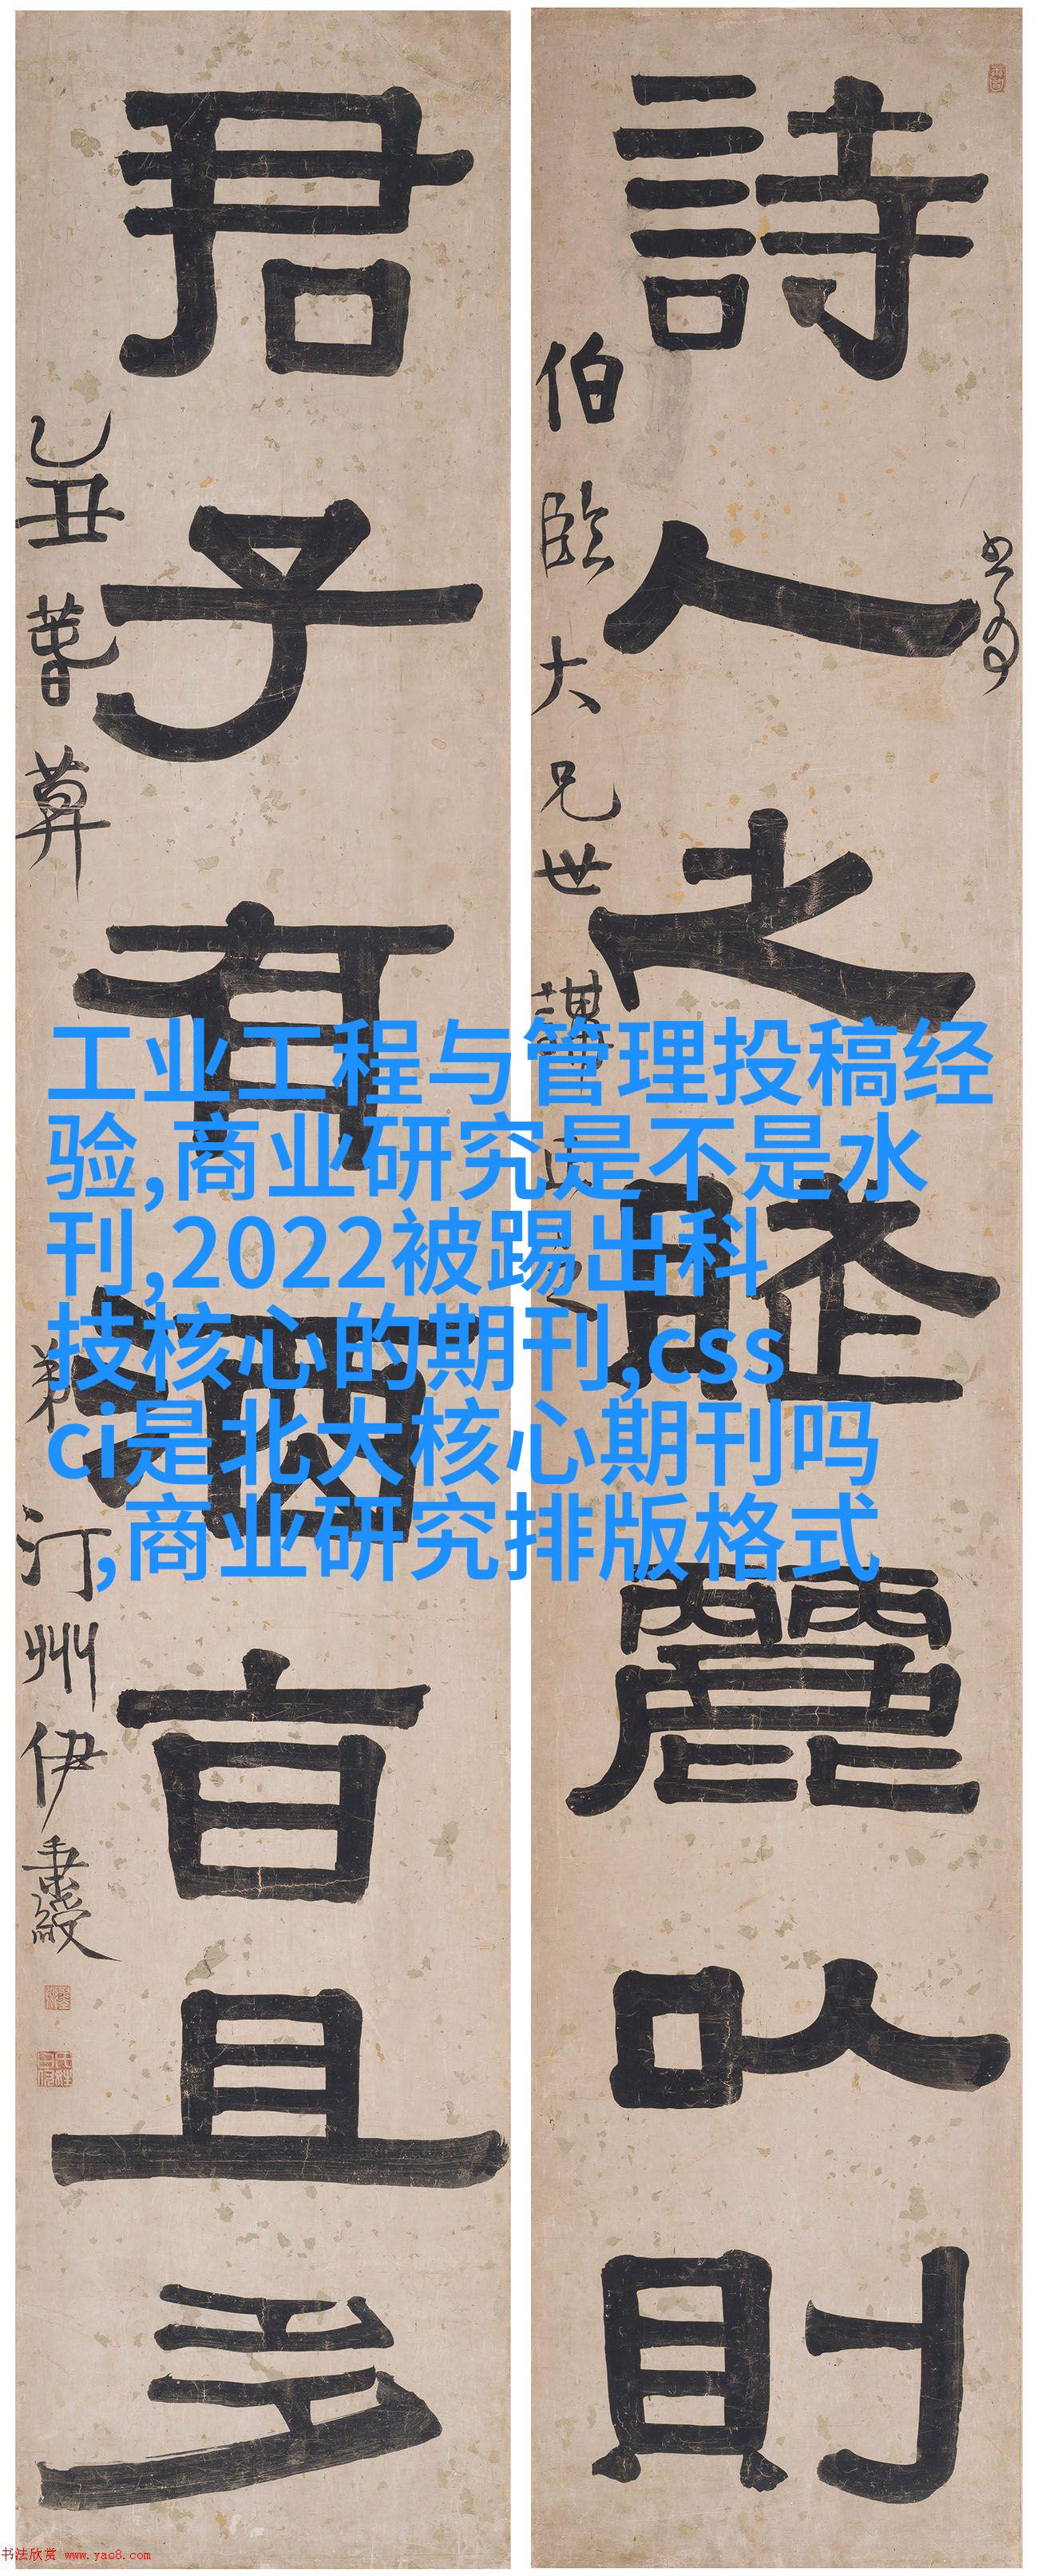 詩人之賦麗以則
伯臨大兄世講正之
君子有酒旨且多
乙丑
弟汀州伊秉綬
工业工程与管理投稿经
验,商业研究是不是水
刊,2022被踢出科
技核心的期刊,css
ci是北大核心期刊吗
,商业研究排版格式
书法欣赏 www.yac8.com